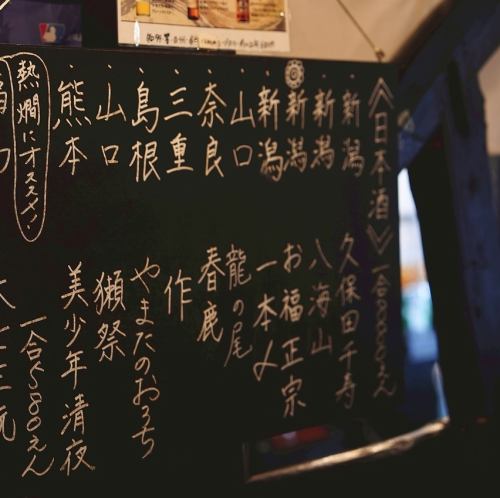 《日本酒》
・新潟 久保田千寿
・新潟 八海山
新潟 お福正宗
・新潟 一本〆
・山口 龍の尾
・奈良 春鹿
・三重 作
・島根 やまたのおろち
・山口 獺祭
・熊本 美少年 清夜
熱燗にオススメ!
一合580えん